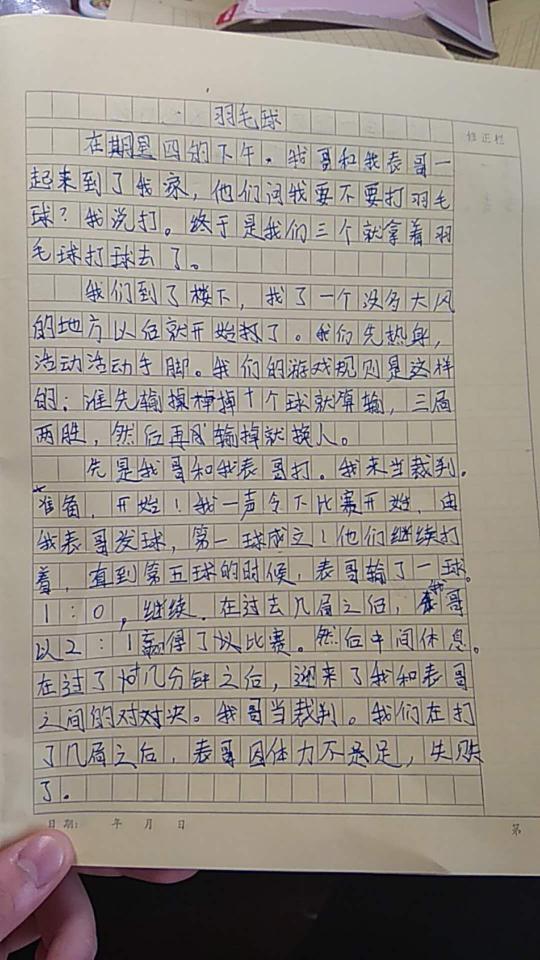 羽毛球
修正栏
在期星四的下午。我哥和我表哥一
起来到了我家，他们问我要不要打羽毛
球？我说打。终于是我们三个就拿着羽
毛球打球去了。
我们到了楼下，找了一个没多大风
的地方以后就开始打了。我们先热身，
活动活动手脚。我们的游戏规则是这样
的：谁先输掉十个球就算输，三局
两胜，然后再输掉就换人。
先是我哥和我表哥打。我来当裁判。
准备，开始！我一声令下比赛开始，由
我表哥发球，第一球成立！他们继续打
着，直到第五球的时候，表哥输了一球。
1：0，继续。在过去几局之后，我哥
以2：1赢得了比赛。然后中间休息。
在过了几分钟之后，迎来了我和表哥
之间的对对决。我哥当裁判。我们在打
了几局之后，表哥因体力不足，失败
了。
日期： 年 月 日
第